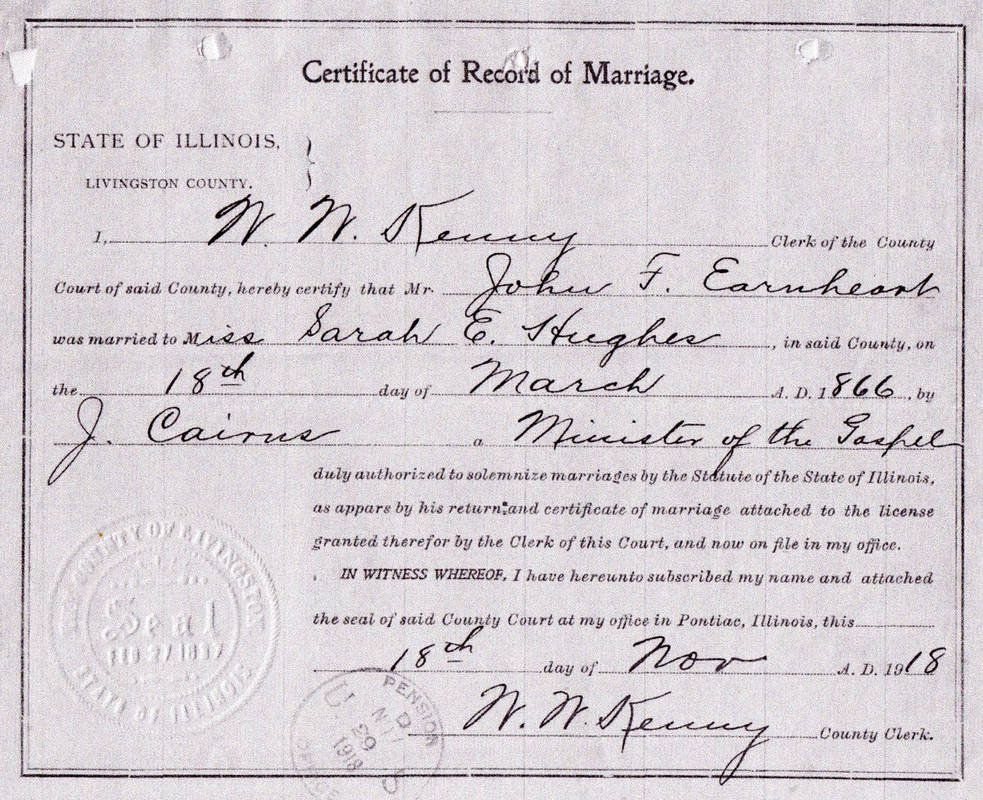 Certificate of Record of Marriage.
STATE OF ILLINOIS,
LIVINGSTON COUNTY.
I, W. W. Kenny Clerk of the County
Court of said County, hereby certify that Mr. John F. Earnheart
was married to Miss Sarah E. Hughes, in said County, on
the 18th day of March A. D. 1866, by
J. Cairns a Minister of the Gospel
duly authorized to solemnize marriages by the Statute of the State of Illinois,
as appars by his return and certificate of marriage attached to the license
granted therefor by the Clerk of this Court, and now on file in my office.
IN WITNESS WHEREOF, I have hereunto subscribed my name and attached
the seal of said County Court at my office in Pontiac, Illinois, this
18th day of Nov A. D. 1918
W. W. Kenny County Clerk.
COUNTY OF LIVINGSTON
Seal
FEB 27 1837
STATE OF ILLINOIS
U. S. PENSION OFFICE
29
1918